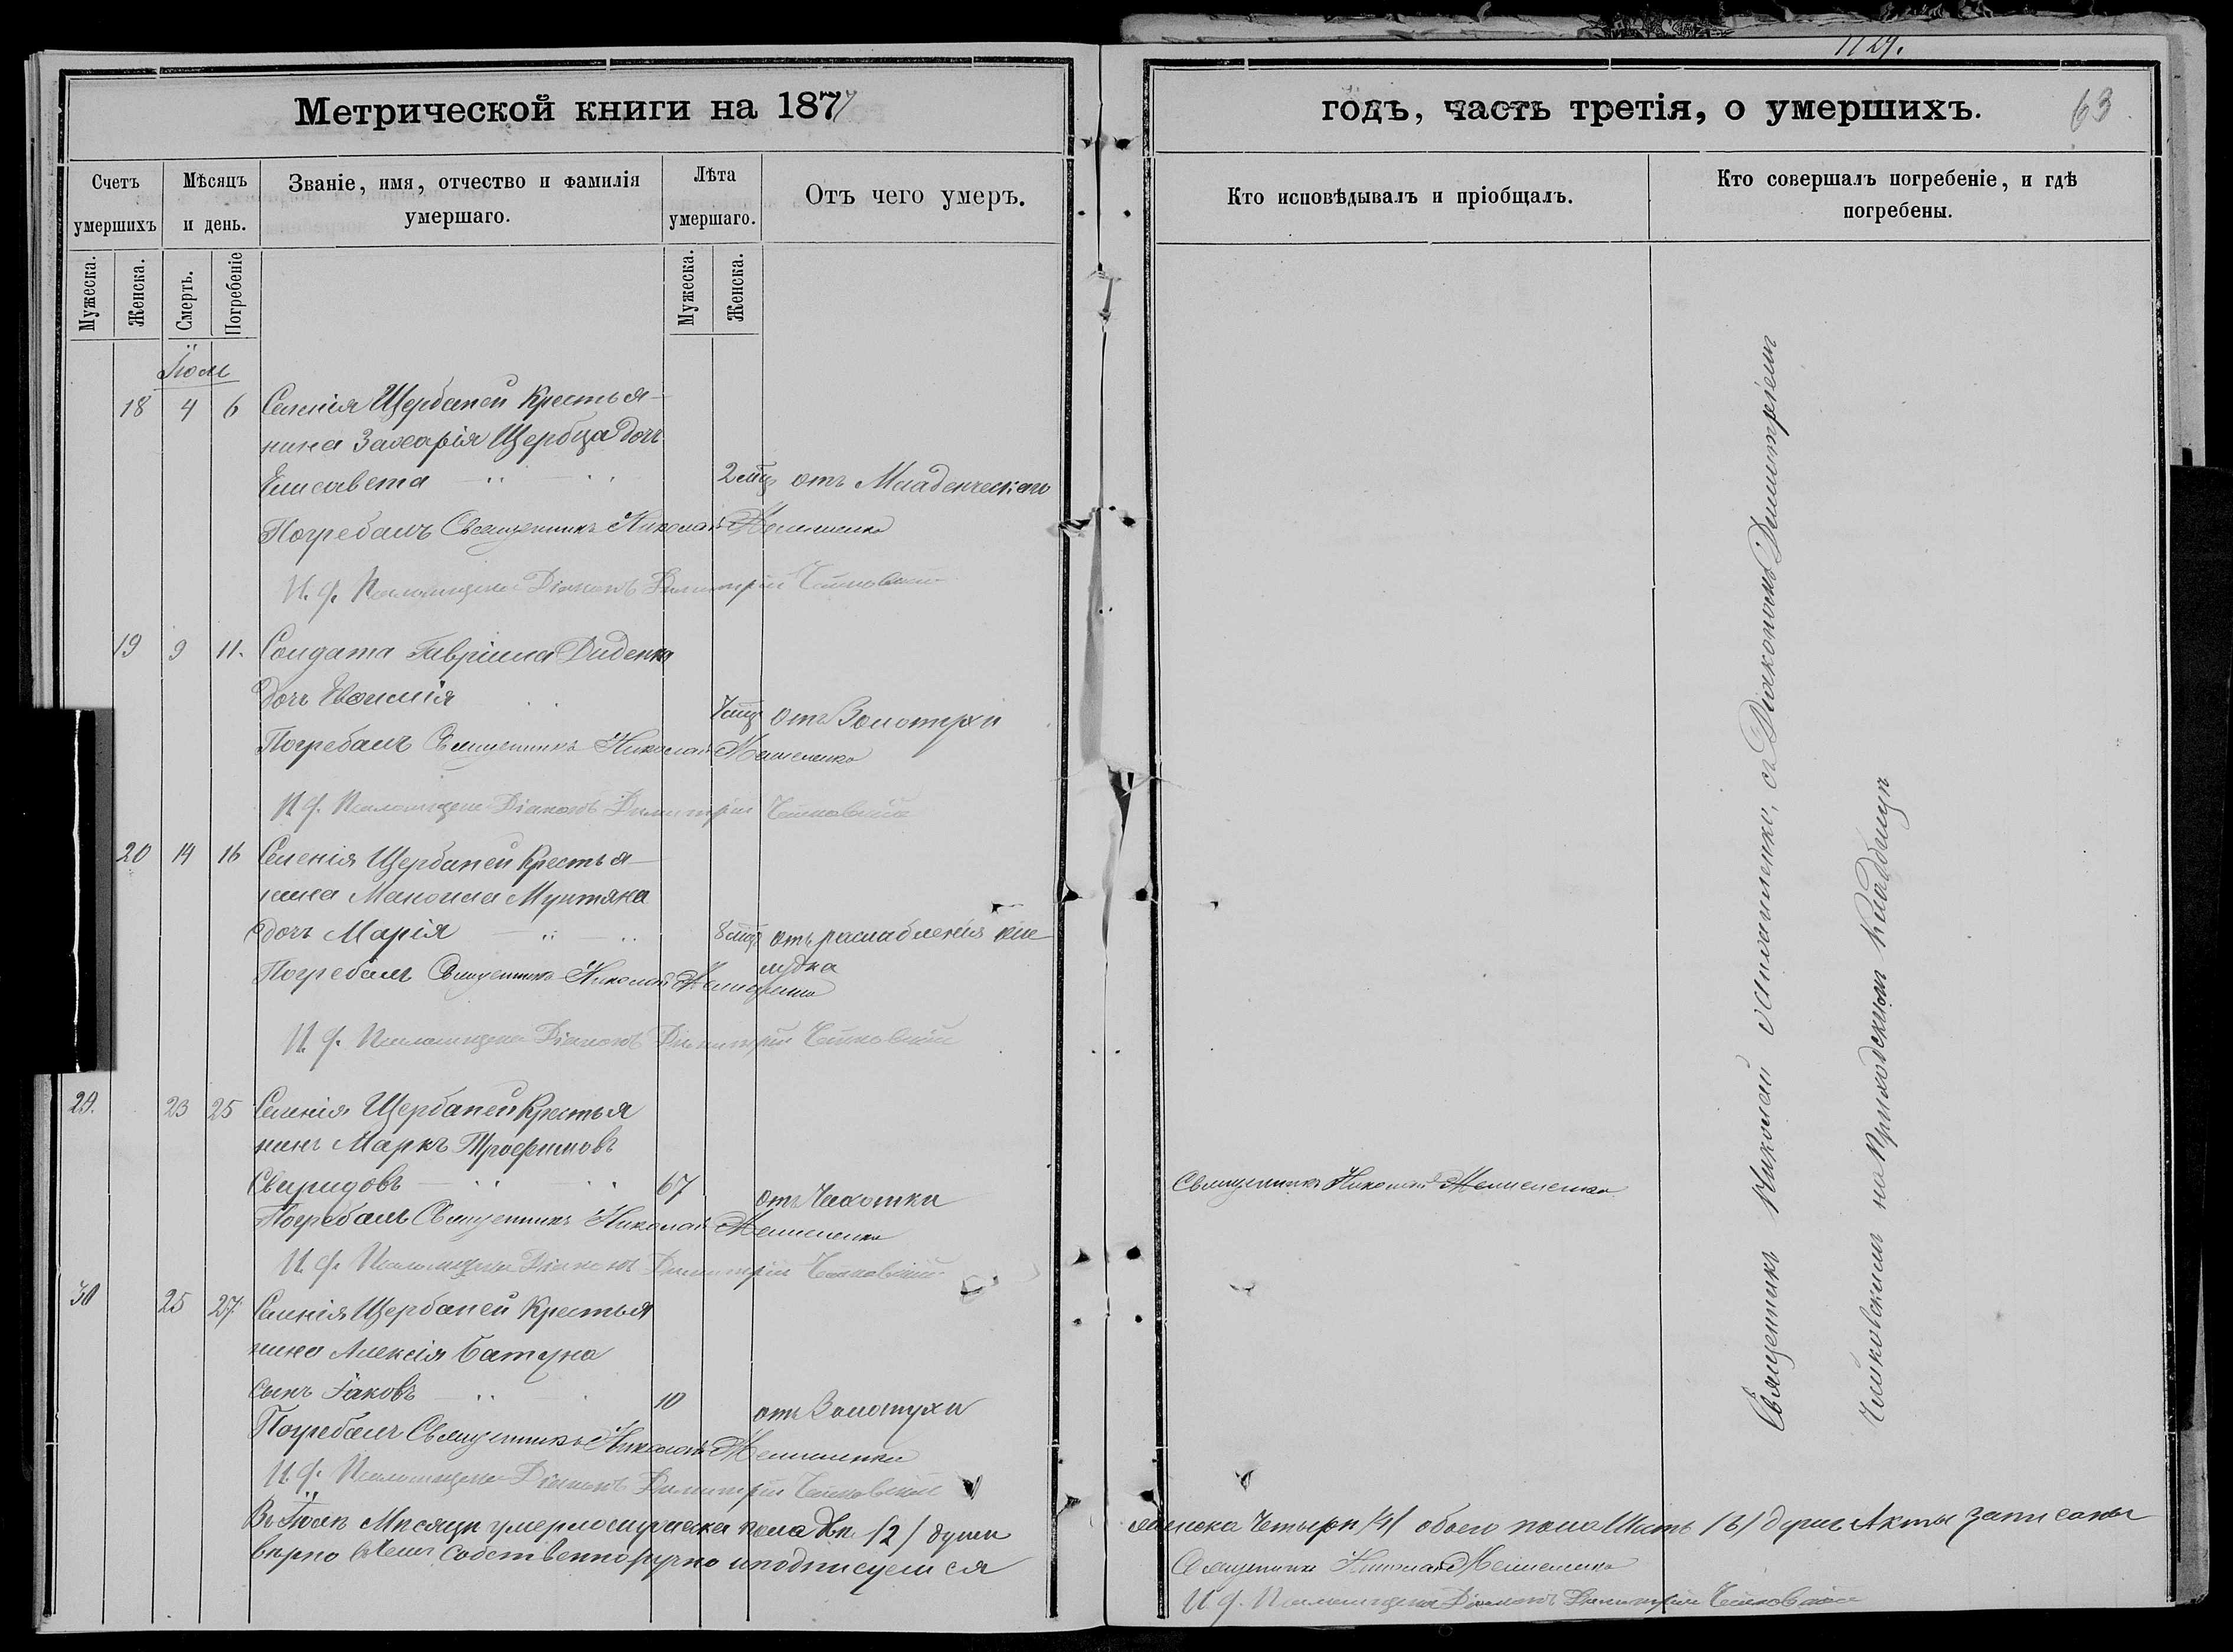 1129.
Метрической книги на 1877
годъ, часть третія, о умершихъ.
63
Счетъ умершихъ
Мѣсяцъ и день.
Званіе, имя, отчество и фамилія умершаго.
Лѣта умершаго.
Отъ чего умеръ.
Кто исповѣдывалъ и пріобщалъ.
Кто совершалъ погребеніе, и гдѣ погребены.
Мужеска.
Женска.
Смерть.
Погребеніе
Мужеска.
Женска.
Іюль
18 4 6 Селенія Щербаней Крестья-
нина Захарія Щербца дочь
Елисавета 2 мѣц отъ Младенческаго
Погребалъ Священникъ Николай
И. ф. Псаломщика Діаконъ Димитрій Чайковскій
19 9 11. Солдата Гавріила Диденка
дочь Евфимія
отъ Золотухи
Погребалъ Священникъ Николай
И. ф. Псаломщика Діаконъ Димитрій Чайковскій
20 14 16 Селенія Щербаней Крестья-
нина Маноила Мунтяна
дочь Марія 8 мѣц отъ разслабленія же-
лудка
Погребалъ Священникъ Николай
И. ф. Псаломщика Діаконъ Димитрій Чайковскій
29. 23 25 Селенія Щербаней Крестья
нинъ Маркъ Трофимовъ
Свиридовъ 67 отъ Чахотки
Священникъ Николай
Погребалъ Священникъ Николай
И. ф. Псаломщика Діаконъ Димитрій Чайковскій
30 25 27 Селенія Щербаней Крестья
нина Алексія Батуна
сынъ Іаковъ 10 отъ Золотухи
Погребалъ Священникъ Николай
И. ф. Псаломщика Діаконъ Димитрій Чайковскій
Въ Іюлѣ Мѣсяцѣ умерло мужеска пола двѣ /2/ души
женска Четыре /4/ обоего пола Шесть /6/ душъ Акты записаны
вѣрно въ чемъ собственноручно и подписуемся
Священникъ Николай
И. ф. Псаломщика Діаконъ Димитрій Чайковскій
Священникъ Николай съ Діакономъ Димитріемъ
Чайковскимъ на Приходскомъ кладбищѣ